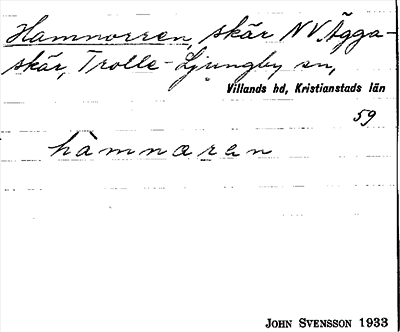 Hamnorren, skär NV. Ägga-
skär, Trolle-Ljungby sn,
Villands hd, Kristianstads län
59
hàmnaren
JOHN SVENSSON 1933